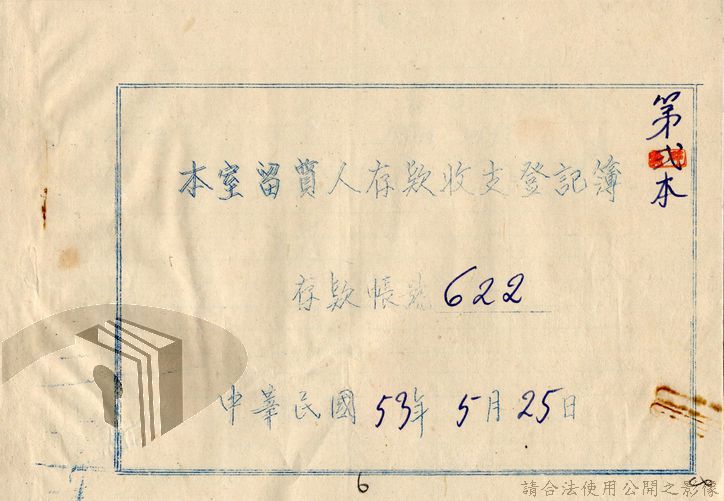 第弍本
本室留質人存款收支登記簿
存款帳號 622
中華民國 53年 5月 25日
6
請合法使用公開之影像